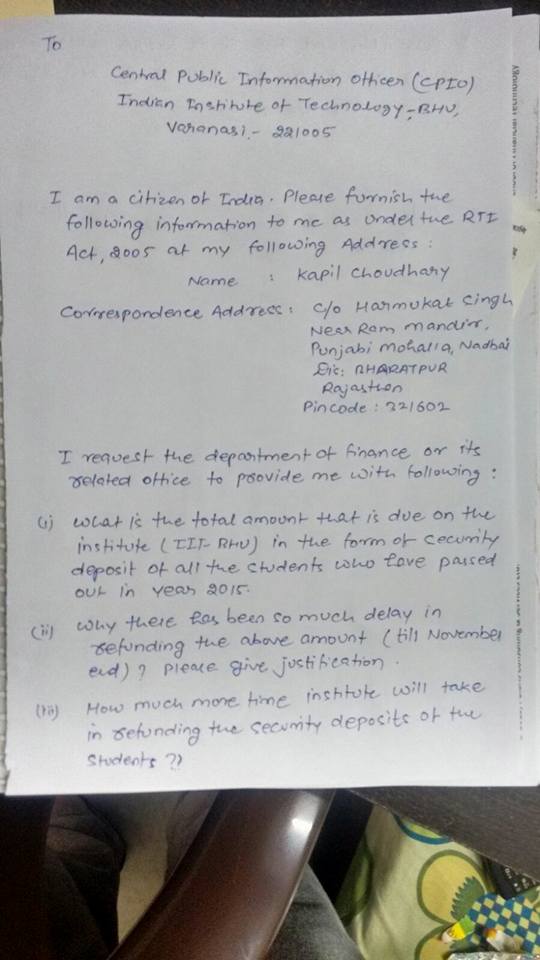 To
Central Public Information Officer (CPIO)
Indian Institute of Technology, BHU,
Varanasi - 221005
I am a citizen of India. Please furnish the
following information to me as under the RTI
Act, 2005 at my following Address :
Name : Kapil Choudhary
Correspondence Address : C/o Harmukat Singh
Near Ram Mandir,
Punjabi Mohalla, Nadbai
Dis: BHARATPUR
Rajasthan
Pincode : 321602
I request the department of finance or its
related office to provide me with following :
(i) What is the total amount that is due on the
institute (IIT-BHU) in the form of security
deposit of all the students who have passed
out in year 2015.
(ii) Why there has been so much delay in
refunding the above amount (till November
end) ? Please give justification.
(iii) How much more time institute will take
in refunding the security deposits of the
students ??